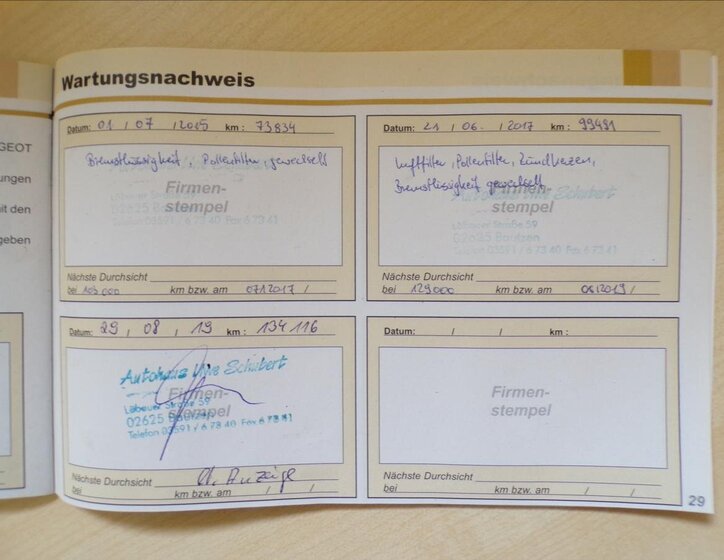 Wartungsnachweis
GEOT
ungen
it den
geben
Datum: 01 / 07 / 2015 km : 73834
Bremsflüssigkeit, Pollenfilter, gewechselt
Firmen-
stempel
Löbauer Straße 59
02625 Bautzen
Telefon 03591 / 6 73 40 Fax 6 73 41
Nächste Durchsicht
bei 103 000 km bzw. am 07/2017 /
Datum: 21 / 06. / 2017 km : 99491
Luftfilter, Pollenfilter, Zündkerzen,
Bremsflüssigkeit gewechselt
Autohaus Uwe Schubert
Firmen-
stempel
Löbauer Straße 59
02625 Bautzen
Telefon 03591 / 6 73 40 Fax 6 73 41
Nächste Durchsicht
bei 129000 km bzw. am 06/2019 /
Datum: 29 / 08 / 19 km : 134 116
Autohaus Uwe Schubert
Firmen-
stempel
Löbauer Straße 59
02625 Bautzen
Telefon 03591 / 6 73 40 Fax 6 73 41
Nächste Durchsicht n. Anzeige
bei / km bzw. am / /
Datum: / / km :
Firmen-
stempel
Nächste Durchsicht
bei / km bzw. am / /
29